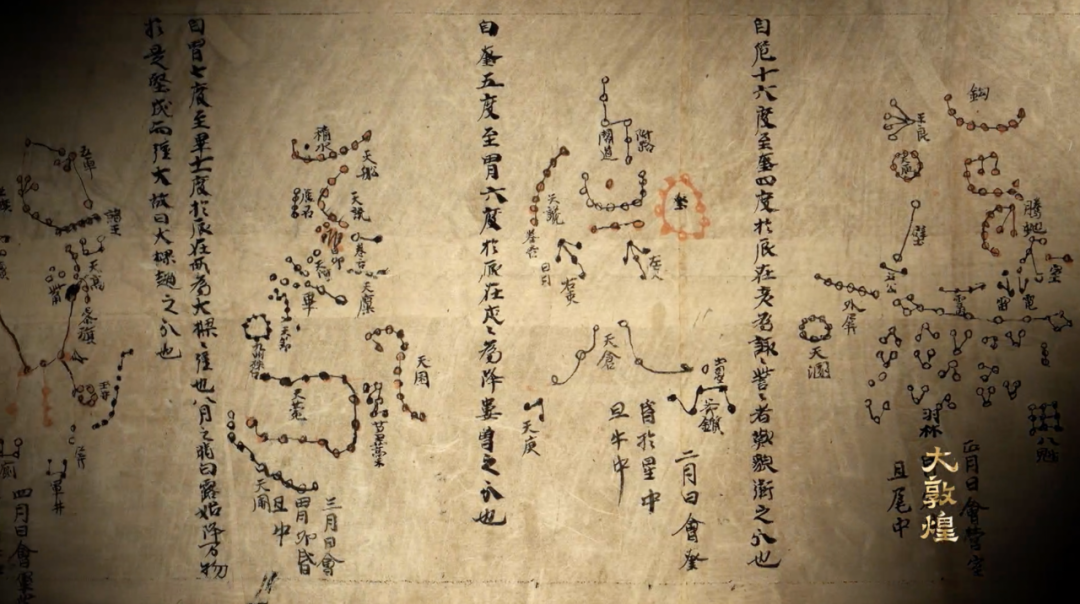 鈎
王良
騰蛇
室
電
雷
壁
土公
外屏
天溷
羽林
八魁
正月日會營室
旦尾中
大敦煌
自危十六度至奎四度於辰在亥為諏訾〻者歎貌衛之分也
閣道
附路
奎
天倉
天庾
二月日會奎
昏於星中
旦牛中
自奎五度至胃六度於辰在戌〻為降婁魯之分也
積水
天船
天讒
卷舌
昴
天廩
畢
天囷
天苑
三月日會
旦中
自胃七度至畢十一度於辰在酉為大梁〻強也八月之時白露始降万物
於是堅成而強大故曰大梁趙之分也
五車
諸王
天高
參旗
觜
屏
軍井
四月日會